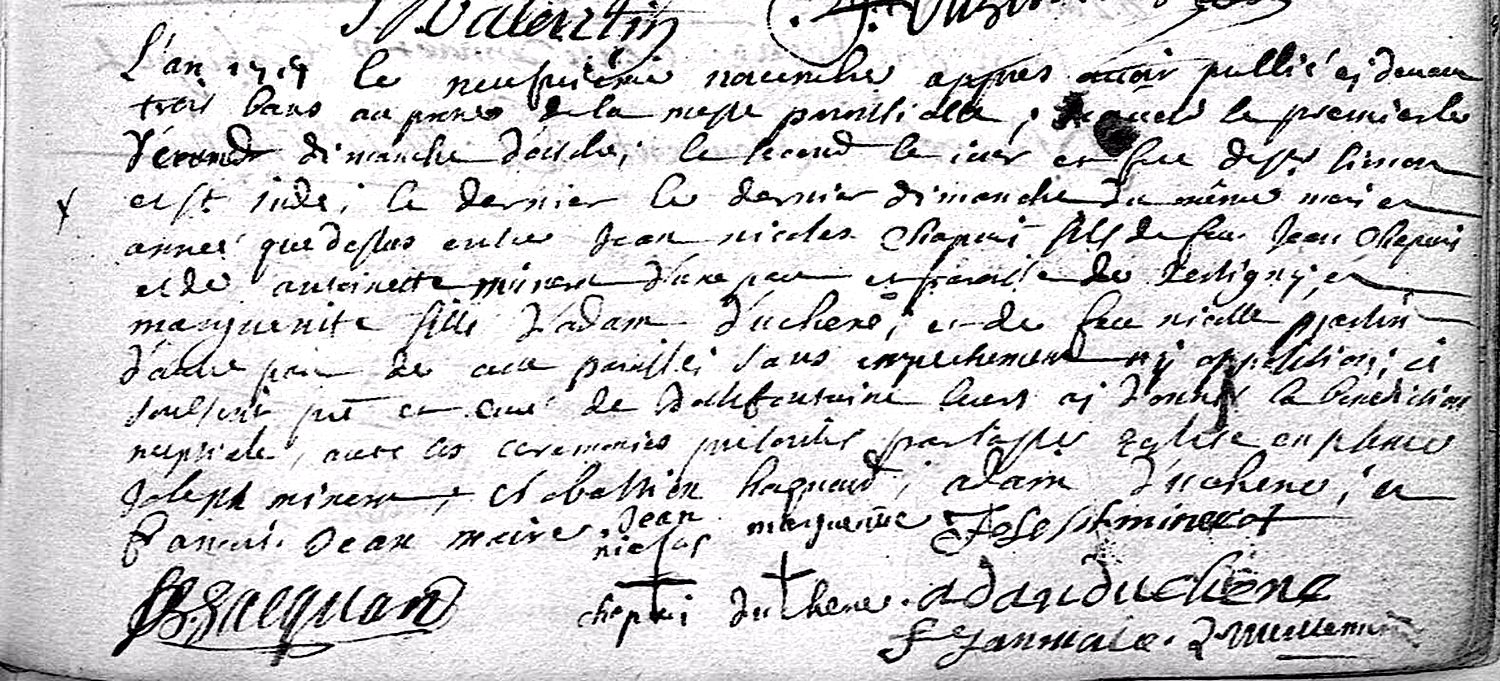 Valentin
L'an 1715 le neufvieme novembre appres avoir publié ci devant
trois bans au prones de la messe paroissialle, le premier le
second dimanche d'octobre; le second le jour et feste de st simon
et st jude; le dernier le dernier dimanche du même mois et
année que dessus entre Jean nicolas Chapui fils de feu Jean Chapui
et de antoinette minerot d'une part et paroisse de Vertigny, et
marguerite fille d'adam d'uchene, et de feue nicolle martin
d'autre part de cette paroisse, sans empechement ny opposition; je
soussigné ptre et curé de leurs ai donné la benediction
nuptiale, avec les ceremonies par la ste Eglise en presence
Joseph minerot, Sebastien haquard, adam d'uchene, et
francois Jean maire Jean nicolas marguerite Joseph minerot
B. Jacquard chapui du chene adam duchene
f Janmaire.